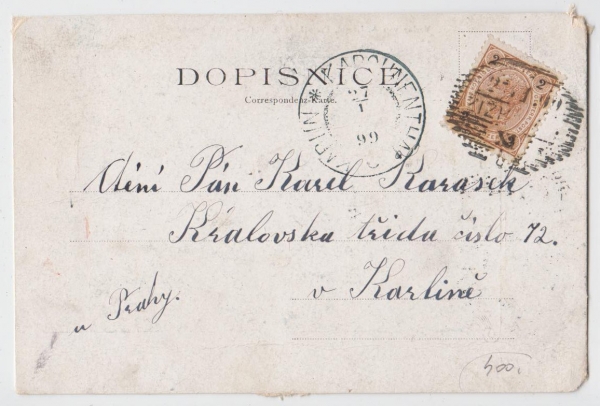 DOPISNICE
Correspondenz-Karte.
KARLÍN * KAROLINENTHAL
99
2 2
Ctění Pán Karel Karasek
Královska třída číslo 72.
v Karlině
u Prahy.
400.